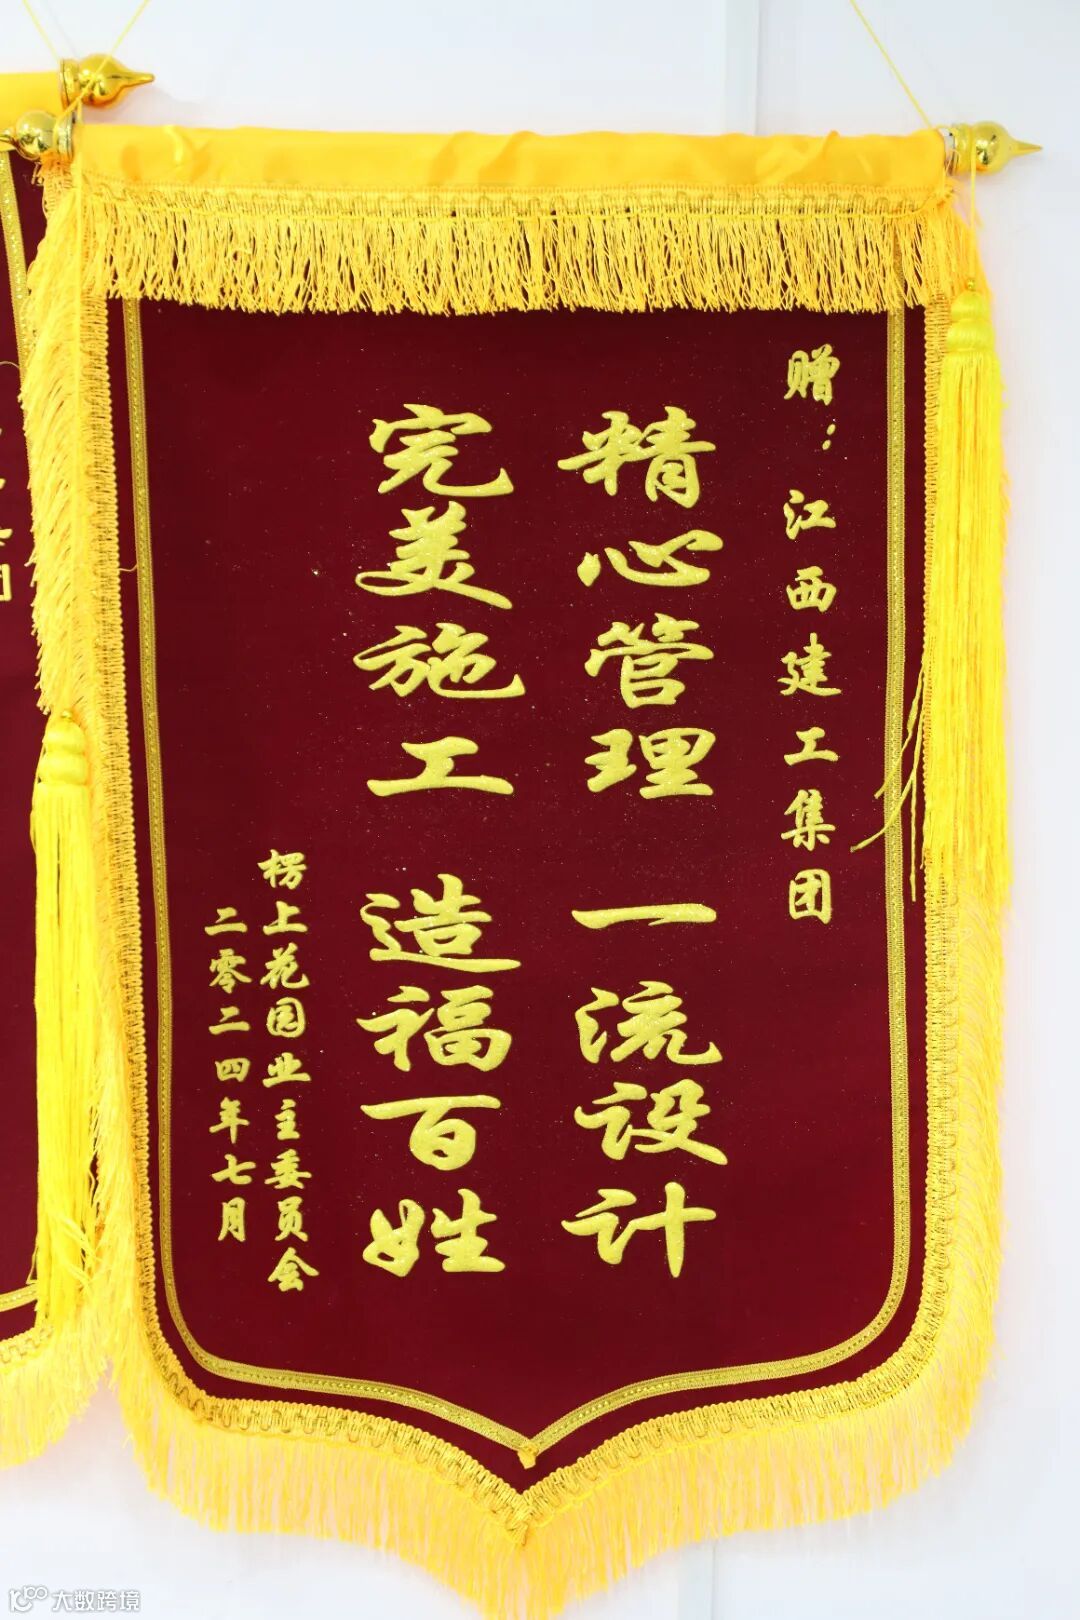 赠：江西建工集团
精心管理 一流设计
完美施工 造福百姓
楞上花园业主委员会
二零二四年七月
大数跨境